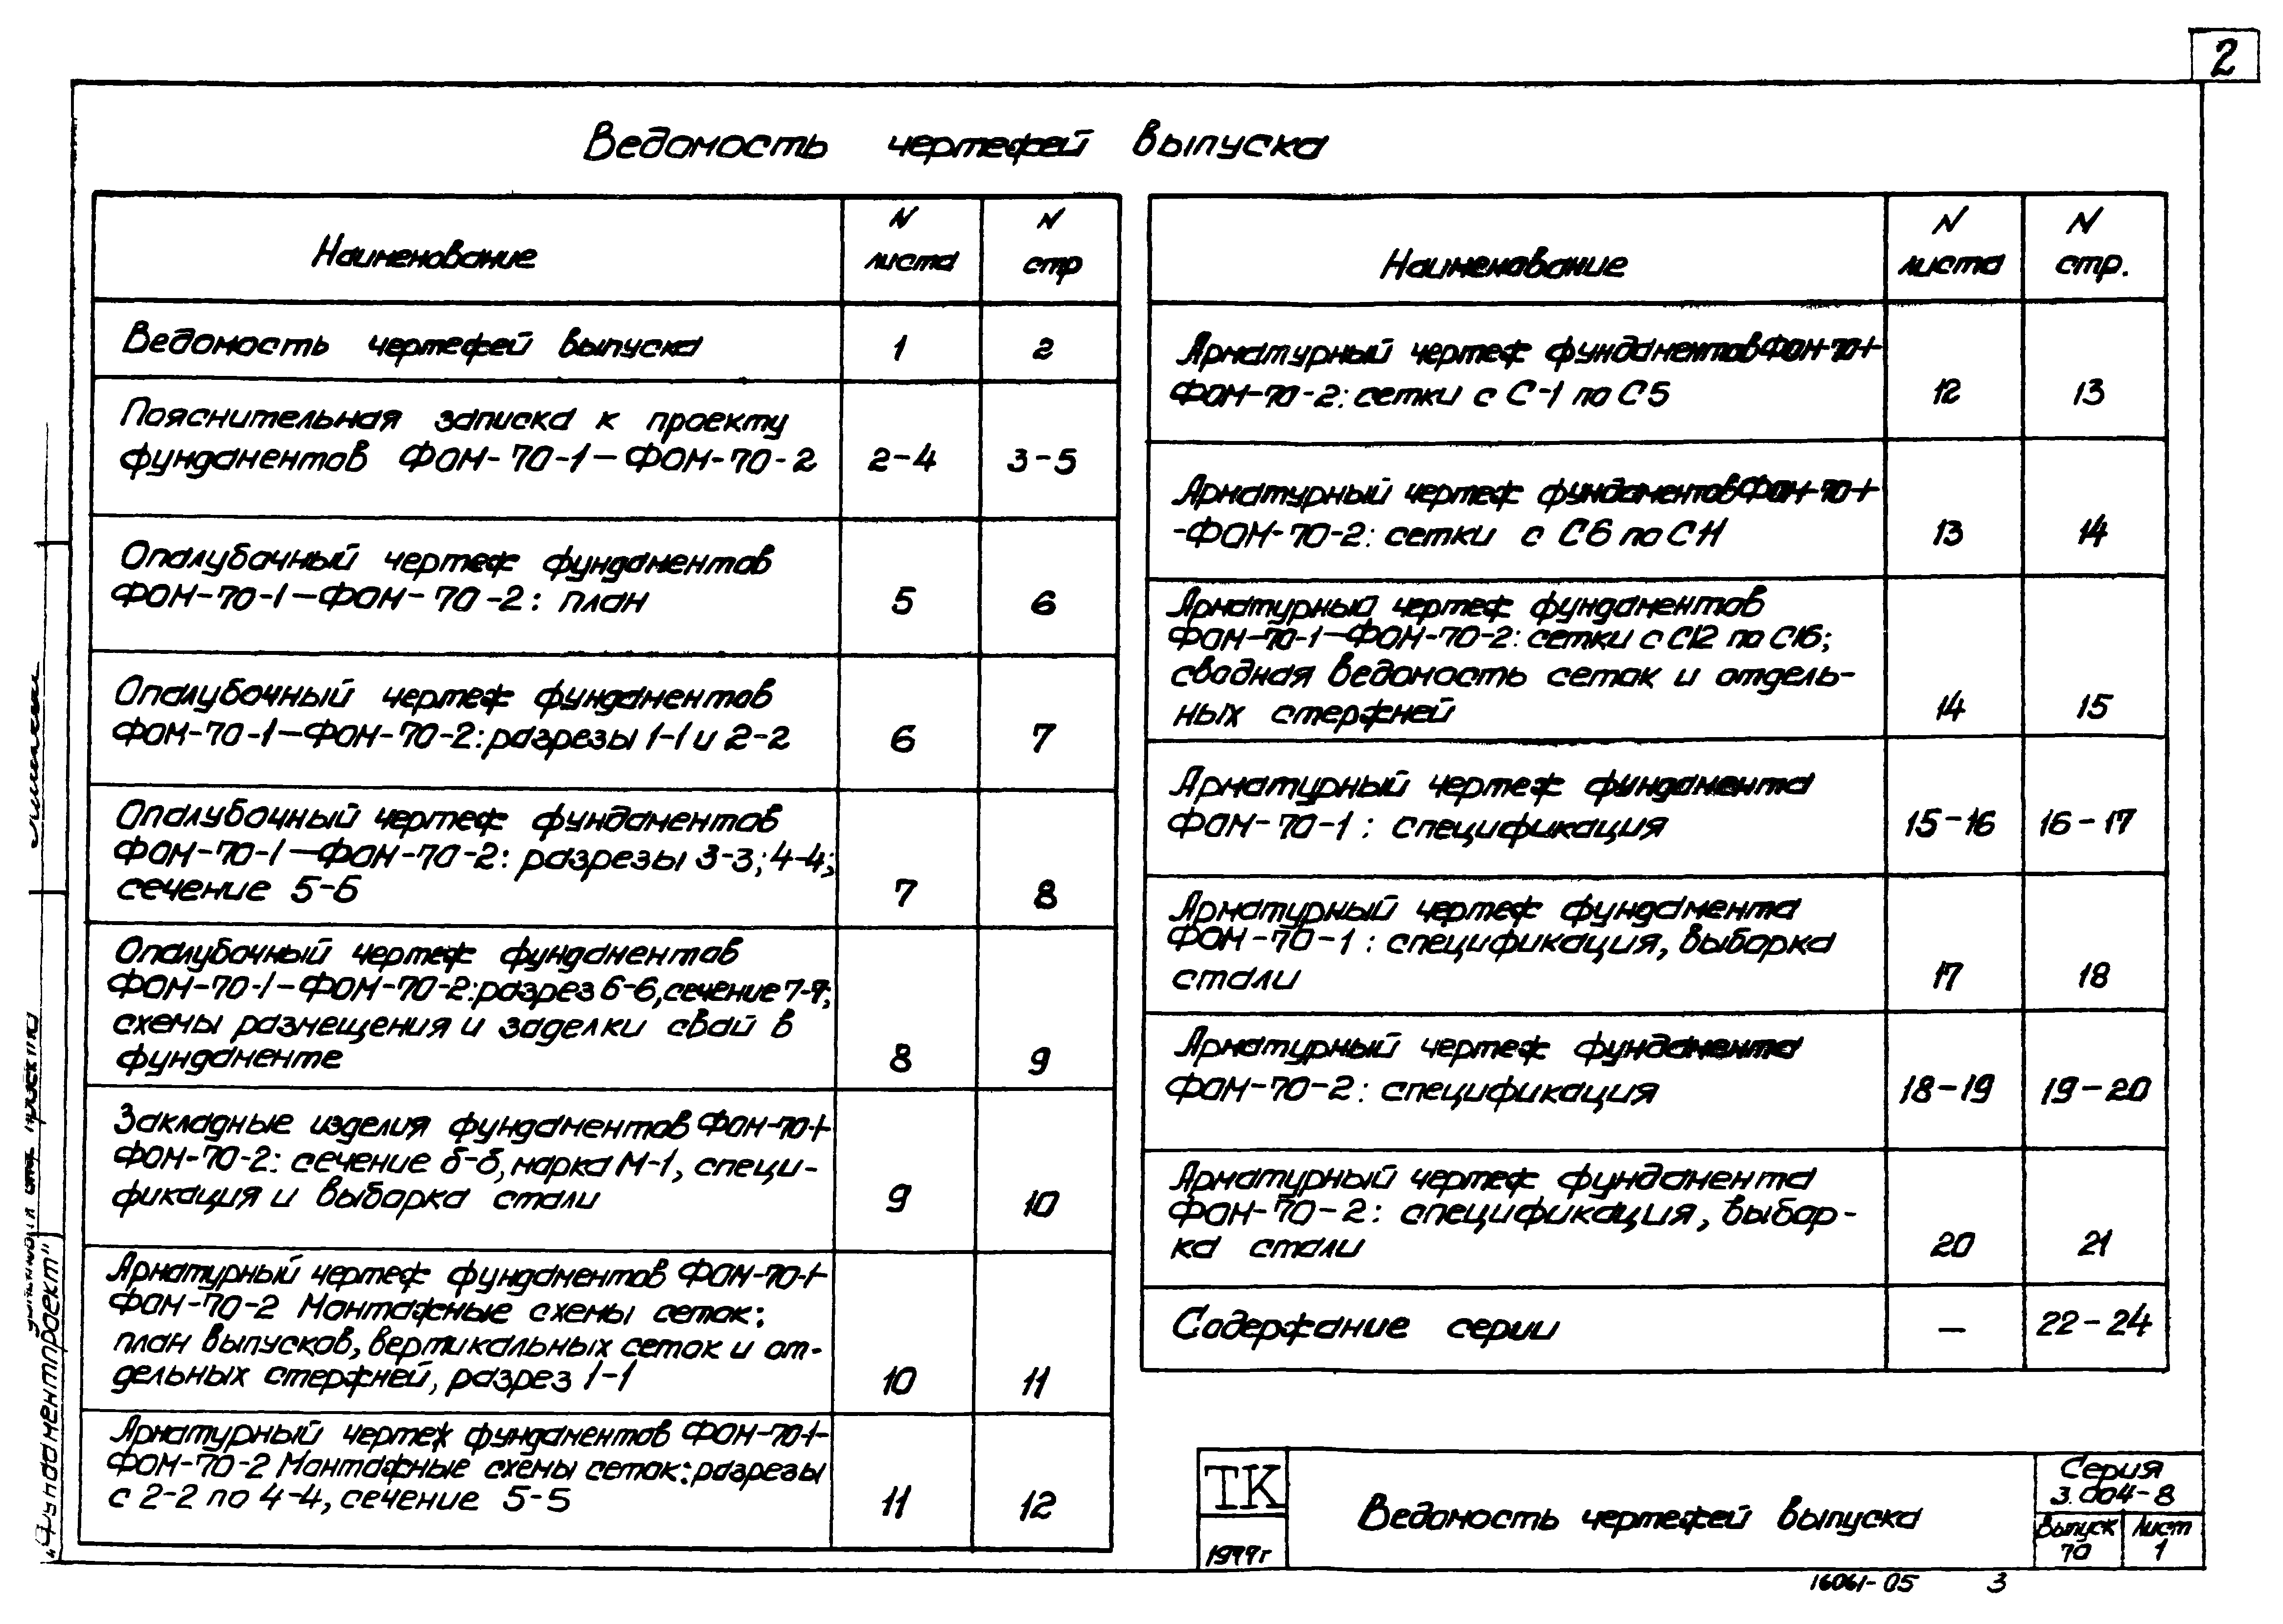 2
Ведомость чертежей выпуска
Наименование N листа N стр
Ведомость чертежей выпуска 1 2
Пояснительная записка к проекту
фундаментов ФОМ-70-1—ФОМ-70-2 2-4 3-5
Опалубочный чертеж фундаментов
ФОМ-70-1—ФОМ-70-2: план 5 6
Опалубочный чертеж фундаментов
ФОМ-70-1—ФОМ-70-2: разрезы 1-1 и 2-2 6 7
Опалубочный чертеж фундаментов
ФОМ-70-1—ФОМ-70-2: разрезы 3-3; 4-4;
сечение 5-5 7 8
Опалубочный чертеж фундаментов
ФОМ-70-1—ФОМ-70-2: разрез 6-6, сечение 7-7;
схемы размещения и заделки свай в
фундаменте 8 9
Закладные изделия фундаментов ФОМ-70-1-
ФОМ-70-2: сечение б-б, марка М-1, специ-
фикация и выборка стали 9 10
Арматурный чертеж фундаментов ФОМ-70-1-
ФОМ-70-2 Монтажные схемы сеток:
план выпусков, вертикальных сеток и от-
дельных стержней, разрез 1-1 10 11
Арматурный чертеж фундаментов ФОМ-70-1-
ФОМ-70-2 Монтажные схемы сеток: разрезы
с 2-2 по 4-4, сечение 5-5 11 12
Наименование N листа N стр.
Арматурный чертеж фундаментов ФОМ-70-1-
ФОМ-70-2: сетки с С-1 по С5 12 13
Арматурный чертеж фундаментов ФОМ-70-1-
-ФОМ-70-2: сетки с С6 по С11 13 14
Арматурный чертеж фундаментов
ФОМ-70-1—ФОМ-70-2: сетки с С12 по С16;
сводная ведомость сеток и отдель-
ных стержней 14 15
Арматурный чертеж фундамента
ФОМ-70-1: спецификация 15-16 16-17
Арматурный чертеж фундамента
ФОМ-70-1: спецификация, выборка
стали 17 18
Арматурный чертеж фундамента
ФОМ-70-2: спецификация 18-19 19-20
Арматурный чертеж фундамента
ФОМ-70-2: спецификация, выбор-
ка стали 20 21
Содержание серии — 22-24
ТК
1977г
Ведомость чертежей выпуска
Серия
3.004-8
Выпуск 70
Лист 1
16061-05 3
„Фундаментпроект"